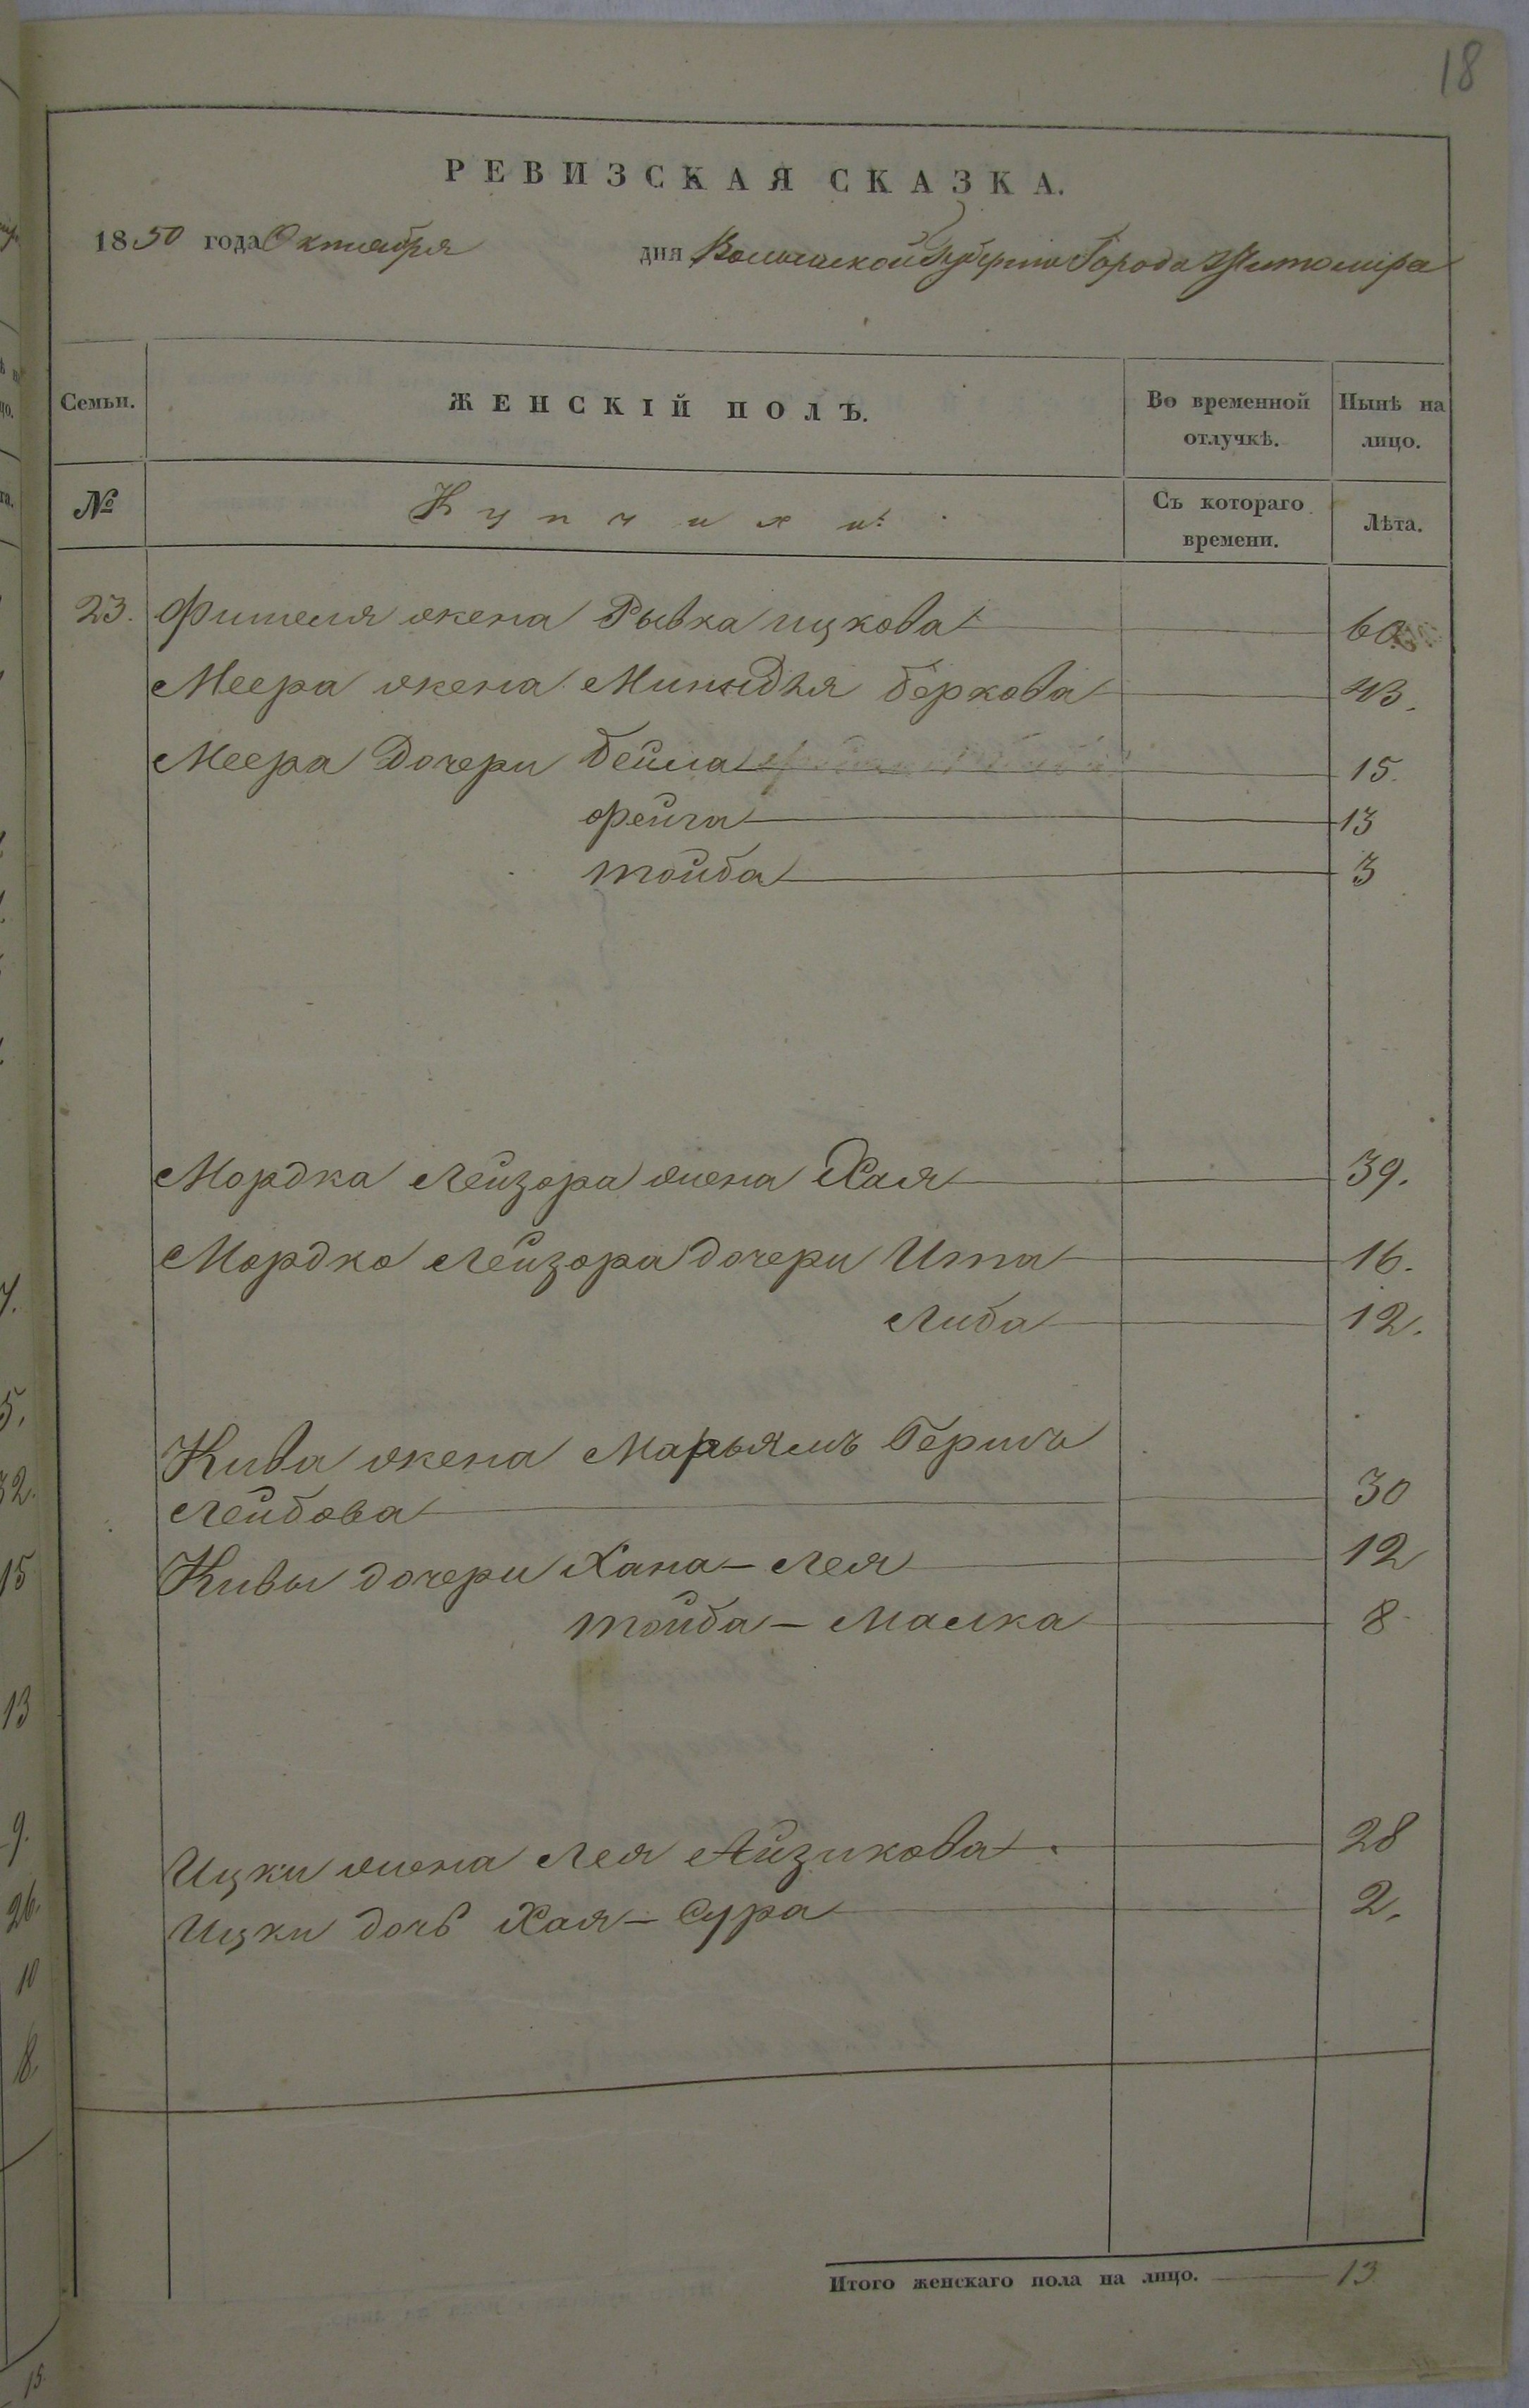 18
РЕВИЗСКАЯ СКАЗКА.
1850 года Октября дня Волынской Губерніи Города Житоміра
Семьи. ЖЕНСКІЙ ПОЛЪ. Во временной отлучкѣ. Нынѣ на лицо.
№ Купчихи: Съ котораго времени. Лѣта.
23. Фишеля жена Рывка ицкова 60
Меера жена Миндля беркова 43.
Меера дочери бейла 15.
фейга 13
тойба 3
Мордка Лейзора жена Хая 39.
Мордко Лейзора дочери Ита 16.
Либа 12.
Кива жена Марьямъ Гершъ
Лейбова 30
Кивы дочери Хана-Лея 12
тойба-Малка 8
Ицки жена Лея Айзикова 28
Ицки дочь Хая-Сура 2.
Итого женскаго пола на лицо. 13